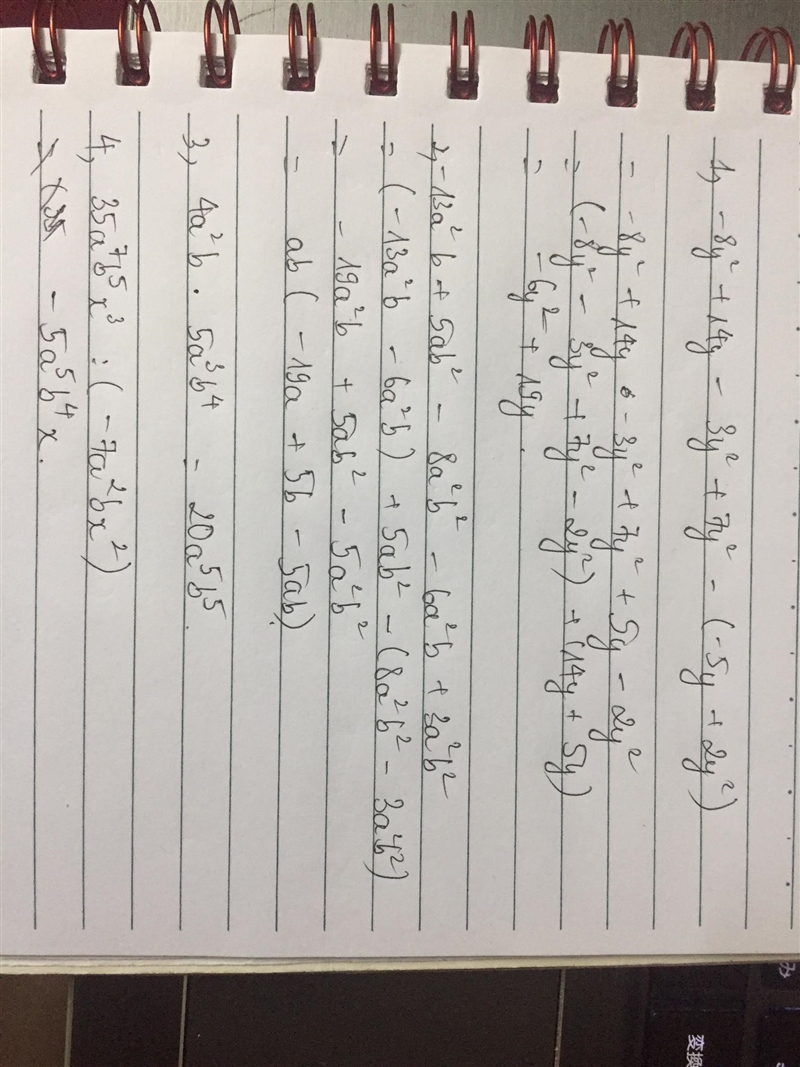 1, -8y² + 14y - 3y² + 7y² - (-5y + 2y²)
= -8y² + 14y - 3y² + 7y² + 5y - 2y²
= (-8y² - 3y² + 7y² - 2y²) + (14y + 5y)
= -6y² + 19y.
2, -13a²b + 5ab² - 8a²b² - 6a²b + 3a²b²
= (-13a²b - 6a²b) + 5ab² - (8a²b² - 3a²b²)
= -19a²b + 5ab² - 5a²b²
= ab(-19a + 5b - 5ab).
3, 4a²b . 5a³b⁴ = 20a⁵b⁵.
4, 35a⁷b⁵x³ : (-7a²bx²)
= -5a⁵b⁴x.
変換